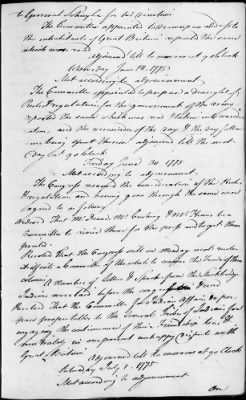 to General Schuyler for his Direction
The Committee appointed to draw up an address to
the inhabitants of Great Britain reported the same
which was read
Adjourned till to morrow at 9 o Clock
Met according to adjournment.
The Committee appointed to prepare a draught of
Rules & regulations for the government of the army
reported the same which was read & taken into consider
ation, and the remainder of the day & the day follow
ing being spent thereon adjourned till the next
day at 9 o Clock
Friday June 30 1775
Met according to adjournment.
The Congress resumed the consideration of the Rules
& regulations and having gone through the same were
agreed to as follows
Ordered That Mr. Deane Mr. Cushing & Mr. Hewes be a
Committee to revise them for the press and get them
printed.
Resolved That the Congress will on Monday next resolve
itself into a Committee of the whole to consider the Trade of these
colonies
A Number of letters & speeches from the Stockbridge
Indians were laid before the congress & read
Resolved That the Committee for Indian Affairs do pre
pare proper talks to the several Tribes of Indians for
engaging the continuance of their Friendship to us &
their Neutrality in our present unhappy dispute with
Great Britain
Adjourned till to morrow at 9 o Clock
Saturday July 1. 1775
Met according to adjournment
On